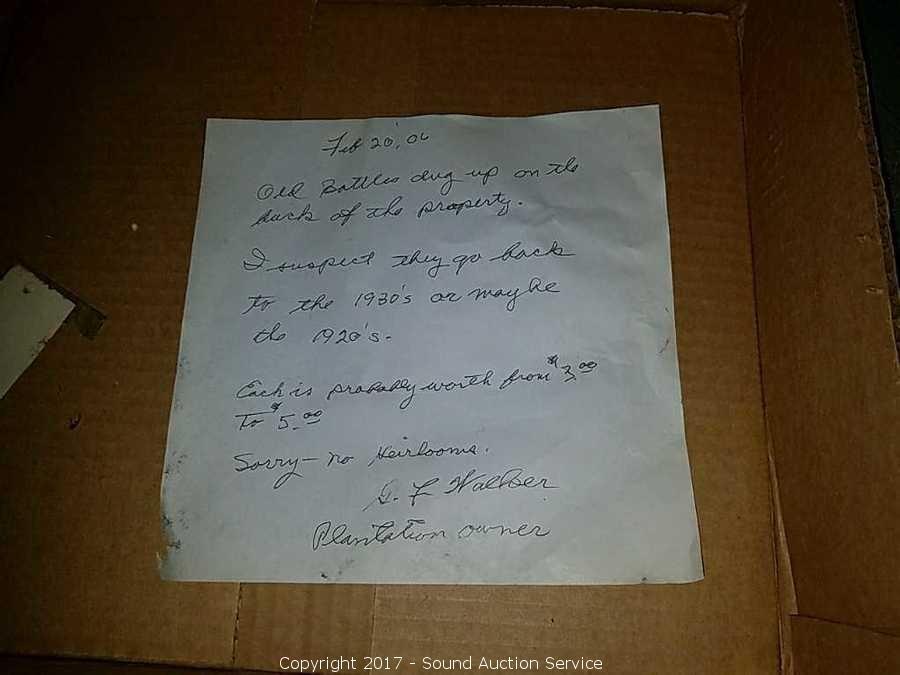 Feb 20, '06
Old Bottles dug up on the
back of the property.
I suspect they go back
to the 1930's or maybe
the 1920's.
Each is probably worth from $3.00
To $5.00
Sorry - no Heirlooms.
F Walker
Plantation owner
Copyright 2017 - Sound Auction Service